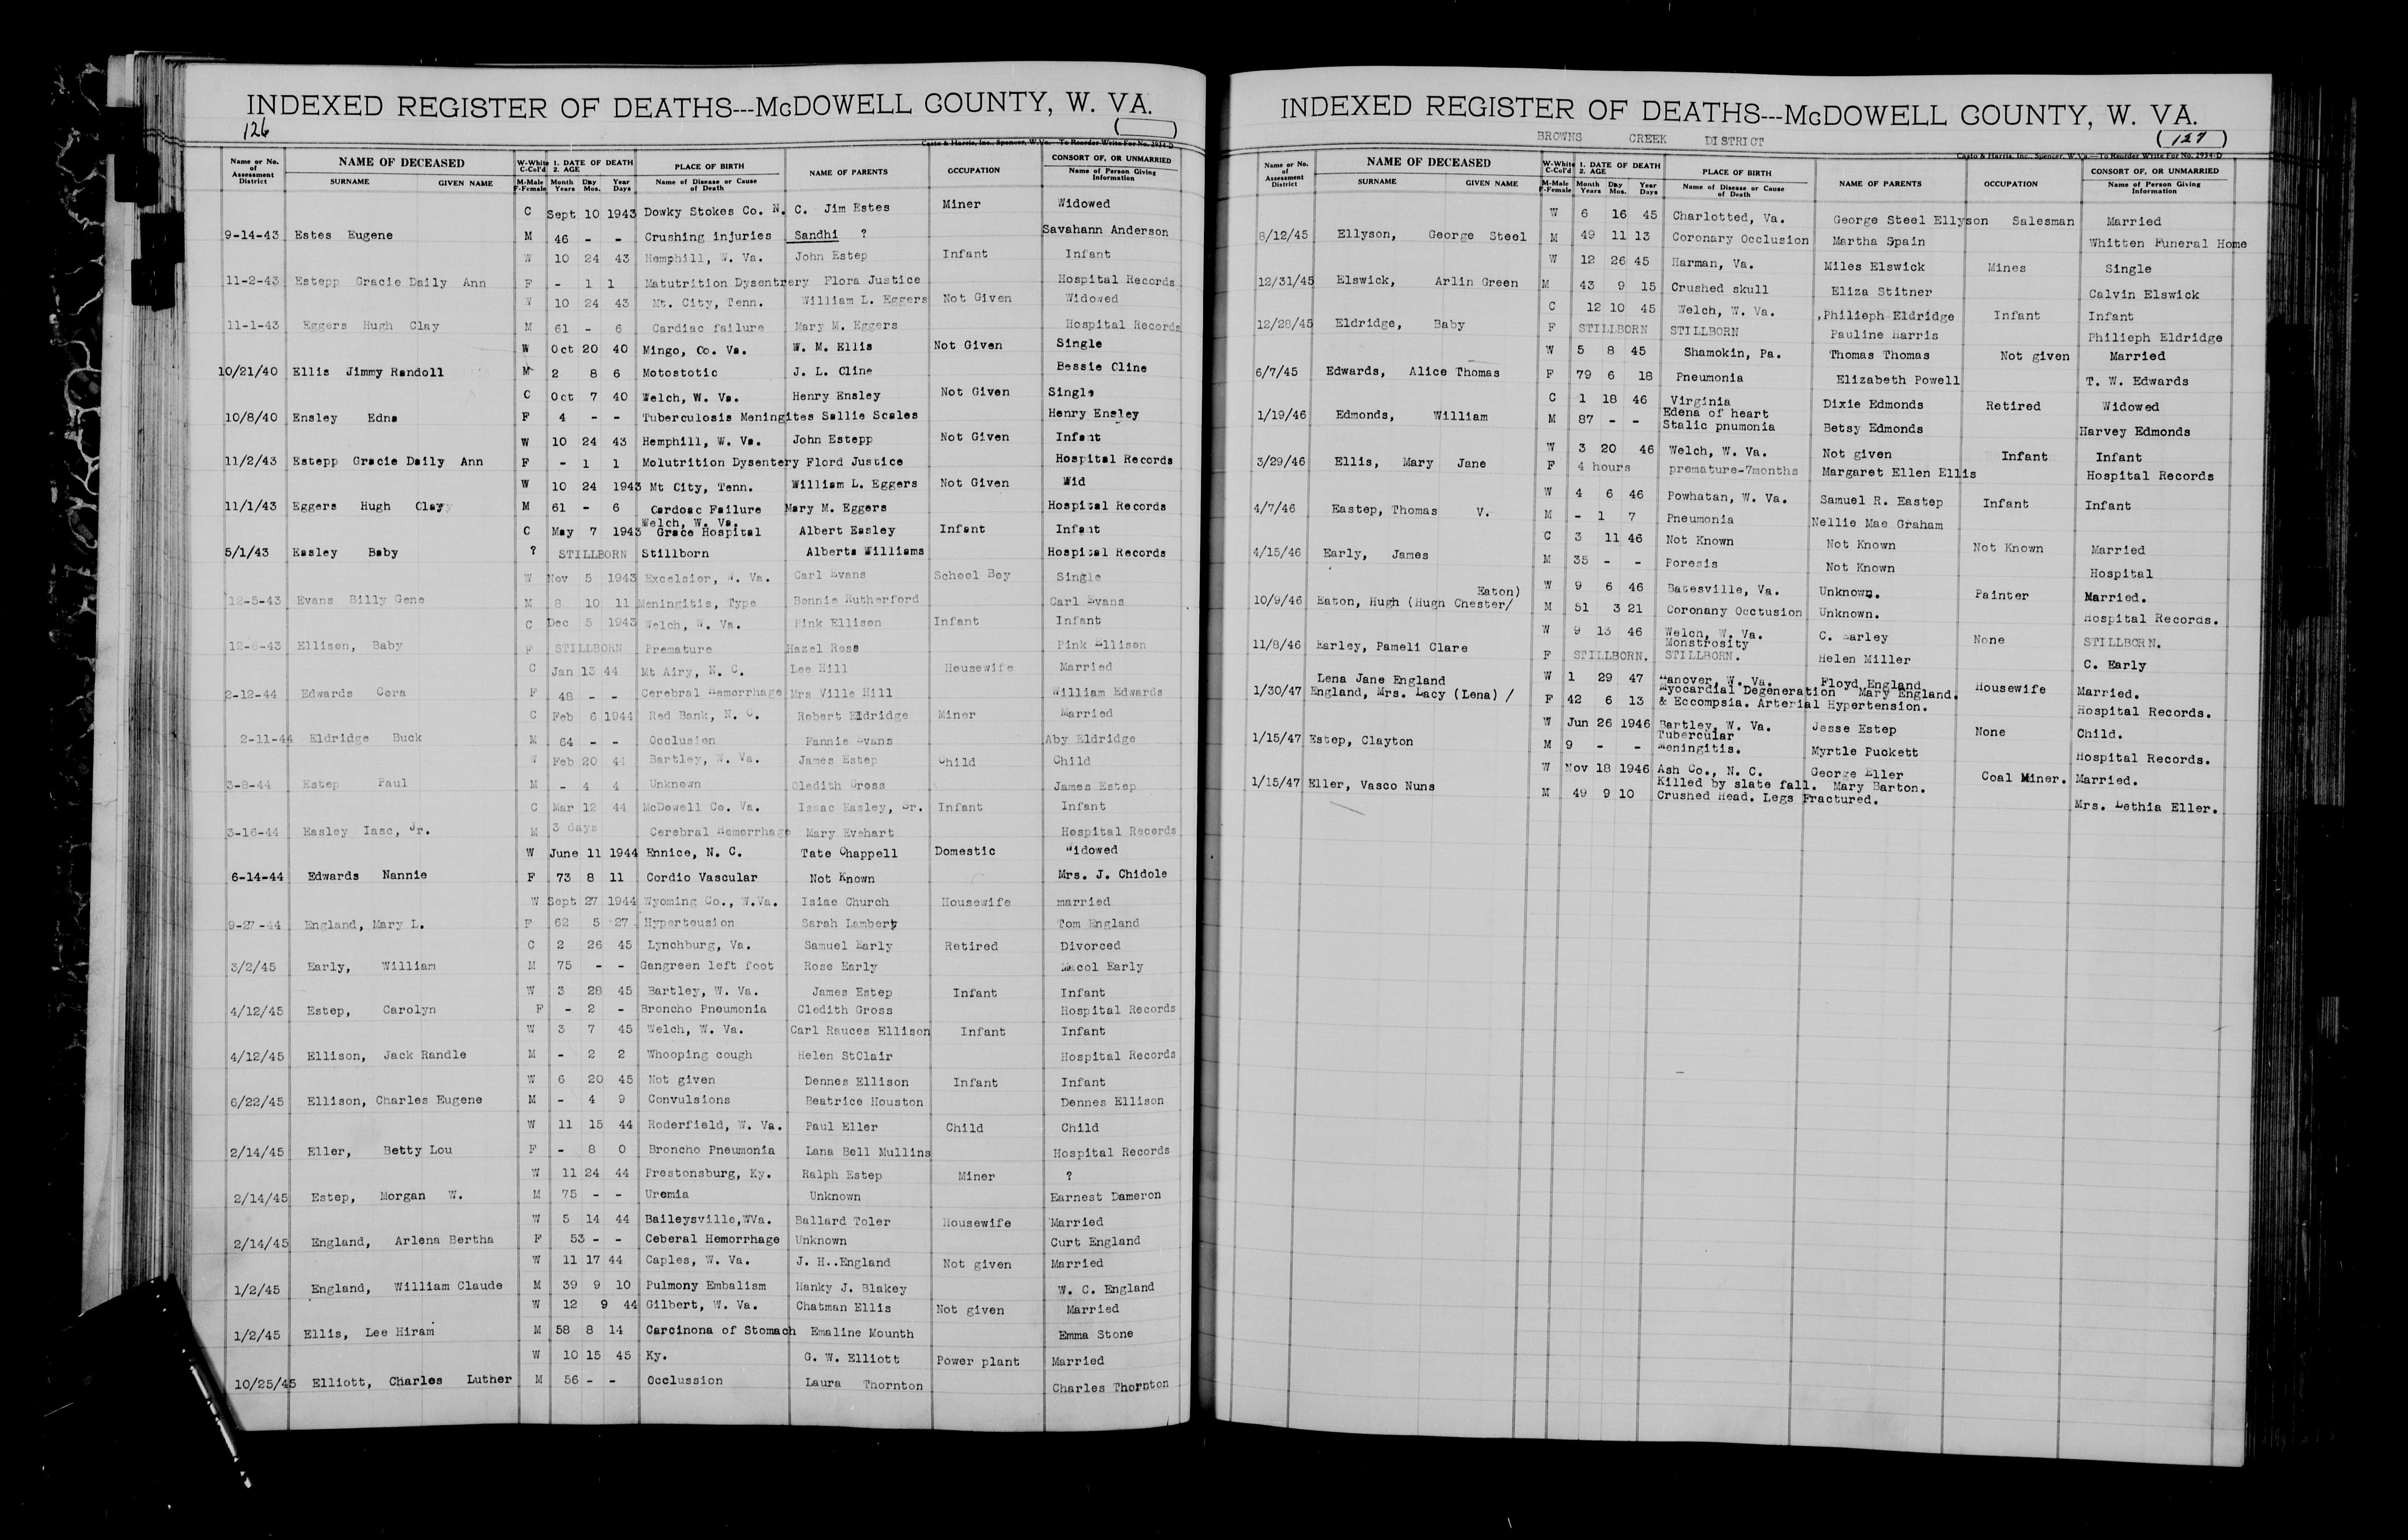 INDEXED REGISTER OF DEATHS---McDOWELL COUNTY, W. VA.
126
Casto & Harris, Inc., Spencer, W.Va.—To Reorder Write For No. 2954-D
Name or No. of Assessment District NAME OF DECEASED SURNAME GIVEN NAME W-White C-Col'd M-Male F-Female 1. DATE OF DEATH 2. AGE Month Day Year Years Mos. Days PLACE OF BIRTH Name of Disease or Cause of Death NAME OF PARENTS OCCUPATION CONSORT OF, OR UNMARRIED Name of Person Giving Information
C Sept 10 1943 Dowky Stokes Co. N. C. Jim Estes Miner Widowed
9-14-43 Estes Eugene M 46 - - Crushing injuries Sandhi ? Savahann Anderson
W 10 24 43 Hemphill, W. Va. John Estep Infant Infant
11-2-43 Estepp Gracie Daily Ann F - 1 1 Matutrition Dysentrery Flora Justice Hospital Records
W 10 24 43 Mt. City, Tenn. William L. Eggers Not Given Widowed
11-1-43 Eggers Hugh Clay M 61 - 6 Cardiac failure Mary M. Eggers Hospital Records
W Oct 20 40 Mingo, Co. Va. W. M. Ellis Not Given Single
10/21/40 Ellis Jimmy Randoll M 2 8 6 Motostotic J. L. Cline Bessie Cline
C Oct 7 40 Welch, W. Va. Henry Ensley Not Given Single
10/8/40 Ensley Edna F 4 - - Tuberculosis Meningites Sallie Scales Henry Ensley
W 10 24 43 Hemphill, W. Va. John Estepp Not Given Infant
11/2/43 Estepp Gracie Daily Ann F - 1 1 Molutrition Dysentery Flord Justice Hospital Records
W 10 24 1943 Mt City, Tenn. William L. Eggers Not Given Wid
11/1/43 Eggers Hugh Clay M 61 - 6 Cardoac Failure Mary M. Eggers Hospital Records
Welch, W. Va.
C May 7 1943 Grace Hospital Albert Easley Infant Infant
5/1/43 Easley Baby ? STILLBORN Stillborn Alberta Williams Hospital Records
W Nov 5 1943 Excelsior, W. Va. Carl Evans School Boy Single
12-5-43 Evans Billy Gene M 8 10 11 Meningitis, Type Bonnie Rutherford Carl Evans
C Dec 5 1943 Welch, W. Va. Pink Ellison Infant Infant
12-6-43 Ellison, Baby F STILLBORN Premature Hazel Ross Pink Ellison
C Jan 13 44 Mt Airy, N. C. Lee Hill Housewife Married
2-12-44 Edwards Cora F 48 - - Cerebral Hemorrhage Mrs Ville Hill William Edwards
C Feb 6 1944 Red Bank, N. C. Robert Eldridge Miner Married
2-11-44 Eldridge Buck M 64 - - Occlusion Fannie Evans Aby Eldridge
W Feb 20 44 Bartley, W. Va. James Estep Child Child
3-8-44 Estep Paul M - 4 4 Unknown Cledith Gross James Estep
C Mar 12 44 McDowell Co. Va. Isaac Easley, Sr. Infant Infant
3-16-44 Easley Iasc, Jr. M 3 days Cerebral Hemorrhage Mary Evehart Hospital Records
W June 11 1944 Ennice, N. C. Tate Chappell Domestic Widowed
6-14-44 Edwards Nannie F 73 8 11 Cordio Vascular Not Known Mrs. J. Chidole
W Sept 27 1944 Wyoming Co., W.Va. Isiae Church Housewife married
9-27-44 England, Mary L. F 62 5 27 Hyperteusion Sarah Lambert Tom England
C 2 26 45 Lynchburg, Va. Samuel Early Retired Divorced
3/2/45 Early, William M 75 - - Gangreen left foot Rose Early Macol Early
W 3 28 45 Bartley, W. Va. James Estep Infant Infant
4/12/45 Estep, Carolyn F - 2 - Broncho Pneumonia Cledith Gross Hospital Records
W 3 7 45 Welch, W. Va. Carl Rauces Ellison Infant Infant
4/12/45 Ellison, Jack Randle M - 2 2 Whooping cough Helen StClair Hospital Records
W 6 20 45 Not given Dennes Ellison Infant Infant
6/22/45 Ellison, Charles Eugene M - 4 9 Convulsions Beatrice Houston Dennes Ellison
W 11 15 44 Roderfield, W. Va. Paul Eller Child Child
2/14/45 Eller, Betty Lou F - 8 0 Broncho Pneumonia Lana Bell Mullins Hospital Records
W 11 24 44 Prestonsburg, Ky. Ralph Estep Miner ?
2/14/45 Estep, Morgan W. M 75 - - Uremia Unknown Earnest Dameron
W 5 14 44 Baileysville,WVa. Ballard Toler Housewife Married
2/14/45 England, Arlena Bertha F 53 - - Ceberal Hemorrhage Unknown Curt England
W 11 17 44 Caples, W. Va. J. H..England Not given Married
1/2/45 England, William Claude M 39 9 10 Pulmony Embalism Hanky J. Blakey W. C. England
W 12 9 44 Gilbert, W. Va. Chatman Ellis Not given Married
1/2/45 Ellis, Lee Hiram M 58 8 14 Carcinona of Stomach Emaline Mounth Emma Stone
W 10 15 45 Ky. G. W. Elliott Power plant Married
10/25/45 Elliott, Charles Luther M 56 - - Occlussion Laura Thornton Charles Thornton
INDEXED REGISTER OF DEATHS---McDOWELL COUNTY, W. VA.
BROWNS CREEK DISTRICT (127)
Casto & Harris, Inc., Spencer, W.Va.—To Reorder Write For No. 2954-D
Name or No. of Assessment District NAME OF DECEASED SURNAME GIVEN NAME W-White C-Col'd M-Male F-Female 1. DATE OF DEATH 2. AGE Month Day Year Years Mos. Days PLACE OF BIRTH Name of Disease or Cause of Death NAME OF PARENTS OCCUPATION CONSORT OF, OR UNMARRIED Name of Person Giving Information
W 6 16 45 Charlotted, Va. George Steel Ellyson Salesman Married
8/12/45 Ellyson, George Steel M 49 11 13 Coronary Occlusion Martha Spain Whitten Funeral Home
W 12 26 45 Harman, Va. Miles Elswick Mines Single
12/31/45 Elswick, Arlin Green M 43 9 15 Crushed skull Eliza Stitner Calvin Elswick
C 12 10 45 Welch, W. Va. ,Philieph Eldridge Infant Infant
12/28/45 Eldridge, Baby F STILLBORN STILLBORN Pauline Harris Philieph Eldridge
W 5 8 45 Shamokin, Pa. Thomas Thomas Not given Married
6/7/45 Edwards, Alice Thomas F 79 6 18 Pneumonia Elizabeth Powell T. W. Edwards
C 1 18 46 Virginia Dixie Edmonds Retired Widowed
1/19/46 Edmonds, William M 87 - - Edena of heart
Stalic pnumonia Betsy Edmonds Harvey Edmonds
W 3 20 46 Welch, W. Va. Not given Infant Infant
3/29/46 Ellis, Mary Jane F 4 hours premature-7months Margaret Ellen Ellis Hospital Records
W 4 6 46 Powhatan, W. Va. Samuel R. Eastep Infant Infant
4/7/46 Eastep, Thomas V. M - 1 7 Pneumonia Nellie Mae Graham
C 3 11 46 Not Known Not Known Not Known Married
4/15/46 Early, James M 35 - - Poresis Not Known Hospital
Eaton) W 9 6 46 Batesville, Va. Unknown. Painter Married.
10/9/46 Eaton, Hugh (Hugn Chester/ M 51 3 21 Coronany Occtusion Unknown. Hospital Records.
W 9 13 46 Welch, W. Va. C. Earley None STILLBORN.
Monstrosity
11/8/46 Earley, Pameli Clare F STILLBORN. STILLBORN. Helen Miller C. Early
Lena Jane England W 1 29 47 Hanover, W. Va. Floyd England Housewife Married.
1/30/47 England, Mrs. Lacy (Lena) / F 42 6 13 Myocardial Degeneration Mary England.
& Eccompsia. Arterial Hypertension. Hospital Records.
W Jun 26 1946 Bartley, W. Va. Jesse Estep None Child.
1/15/47 Estep, Clayton M 9 - - Tubercular
Meningitis. Myrtle Puckett Hospital Records.
W Nov 18 1946 Ash Co., N. C. George Eller Coal Miner. Married.
1/15/47 Eller, Vasco Nuns M 49 9 10 Killed by slate fall. Mary Barton.
Crushed Head. Legs Fractured. Mrs. Lethia Eller.